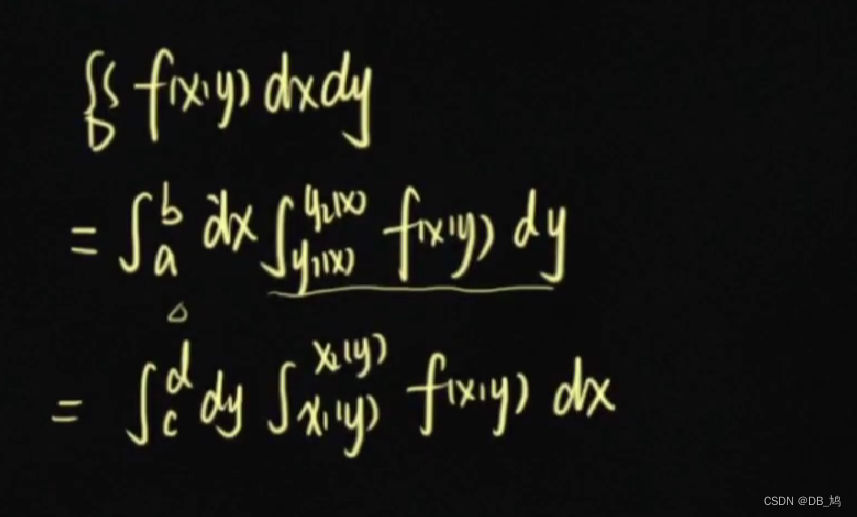 ∬_D f(x,y) dxdy
= ∫_a^b dx ∫_{y₁(x)}^{y₂(x)} f(x,y) dy
= ∫_c^d dy ∫_{x₁(y)}^{x₂(y)} f(x,y) dx
CSDN @DB_鸠